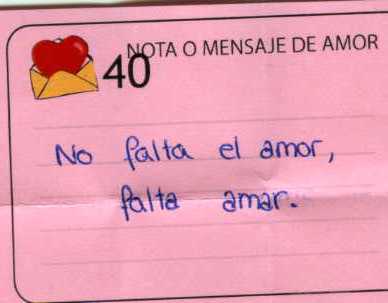 40
NOTA O MENSAJE DE AMOR
No falta el amor,
falta amar.